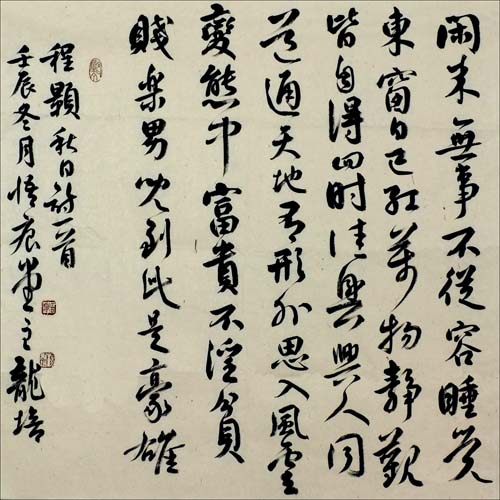 閑来無事不從容睡觉
東窗日已紅萬物靜觀
皆自得四时佳興與人同
道通天地有形外思入風雲
變態中富貴不淫貧
賤楽男兒到此是豪雄
程顥秋日詩一首
壬辰冬月悟痕堂主龍培